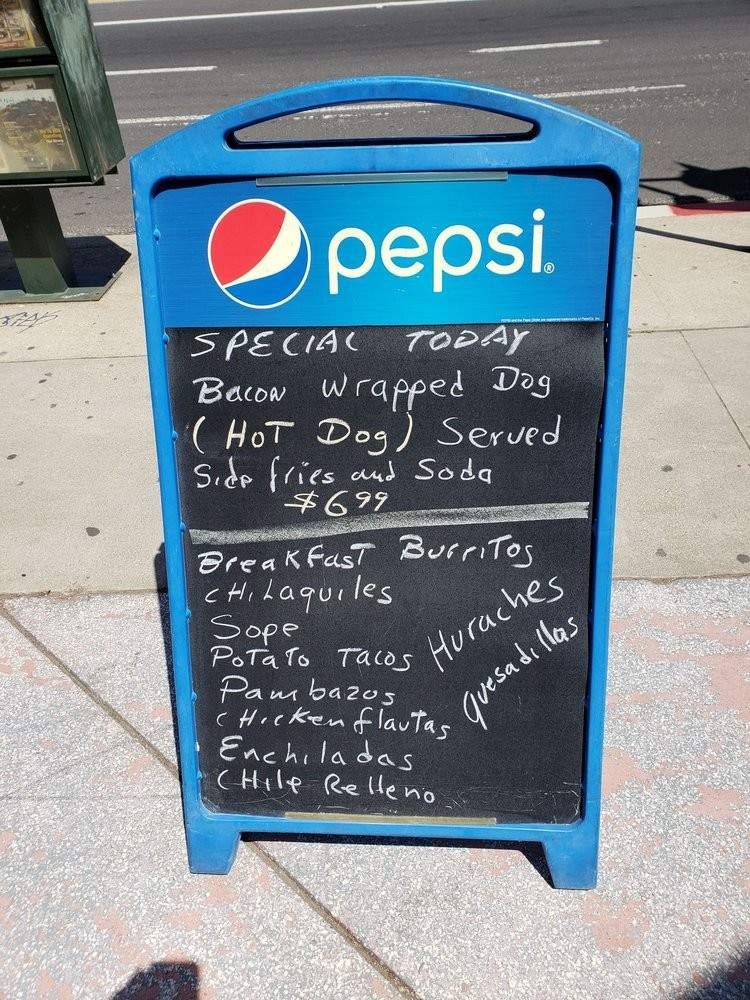 pepsi®
SPECIAL TODAY
Bacon Wrapped Dog
(HOT Dog) Served
Side fries and Soda
$6.99
BreaKFasT BurriTos
CHiLaquiles
Sope
PoTaTo Tacos
Huraches
Quesadillas
Pambazos
CHicken flautas
Enchiladas
CHile Relleno